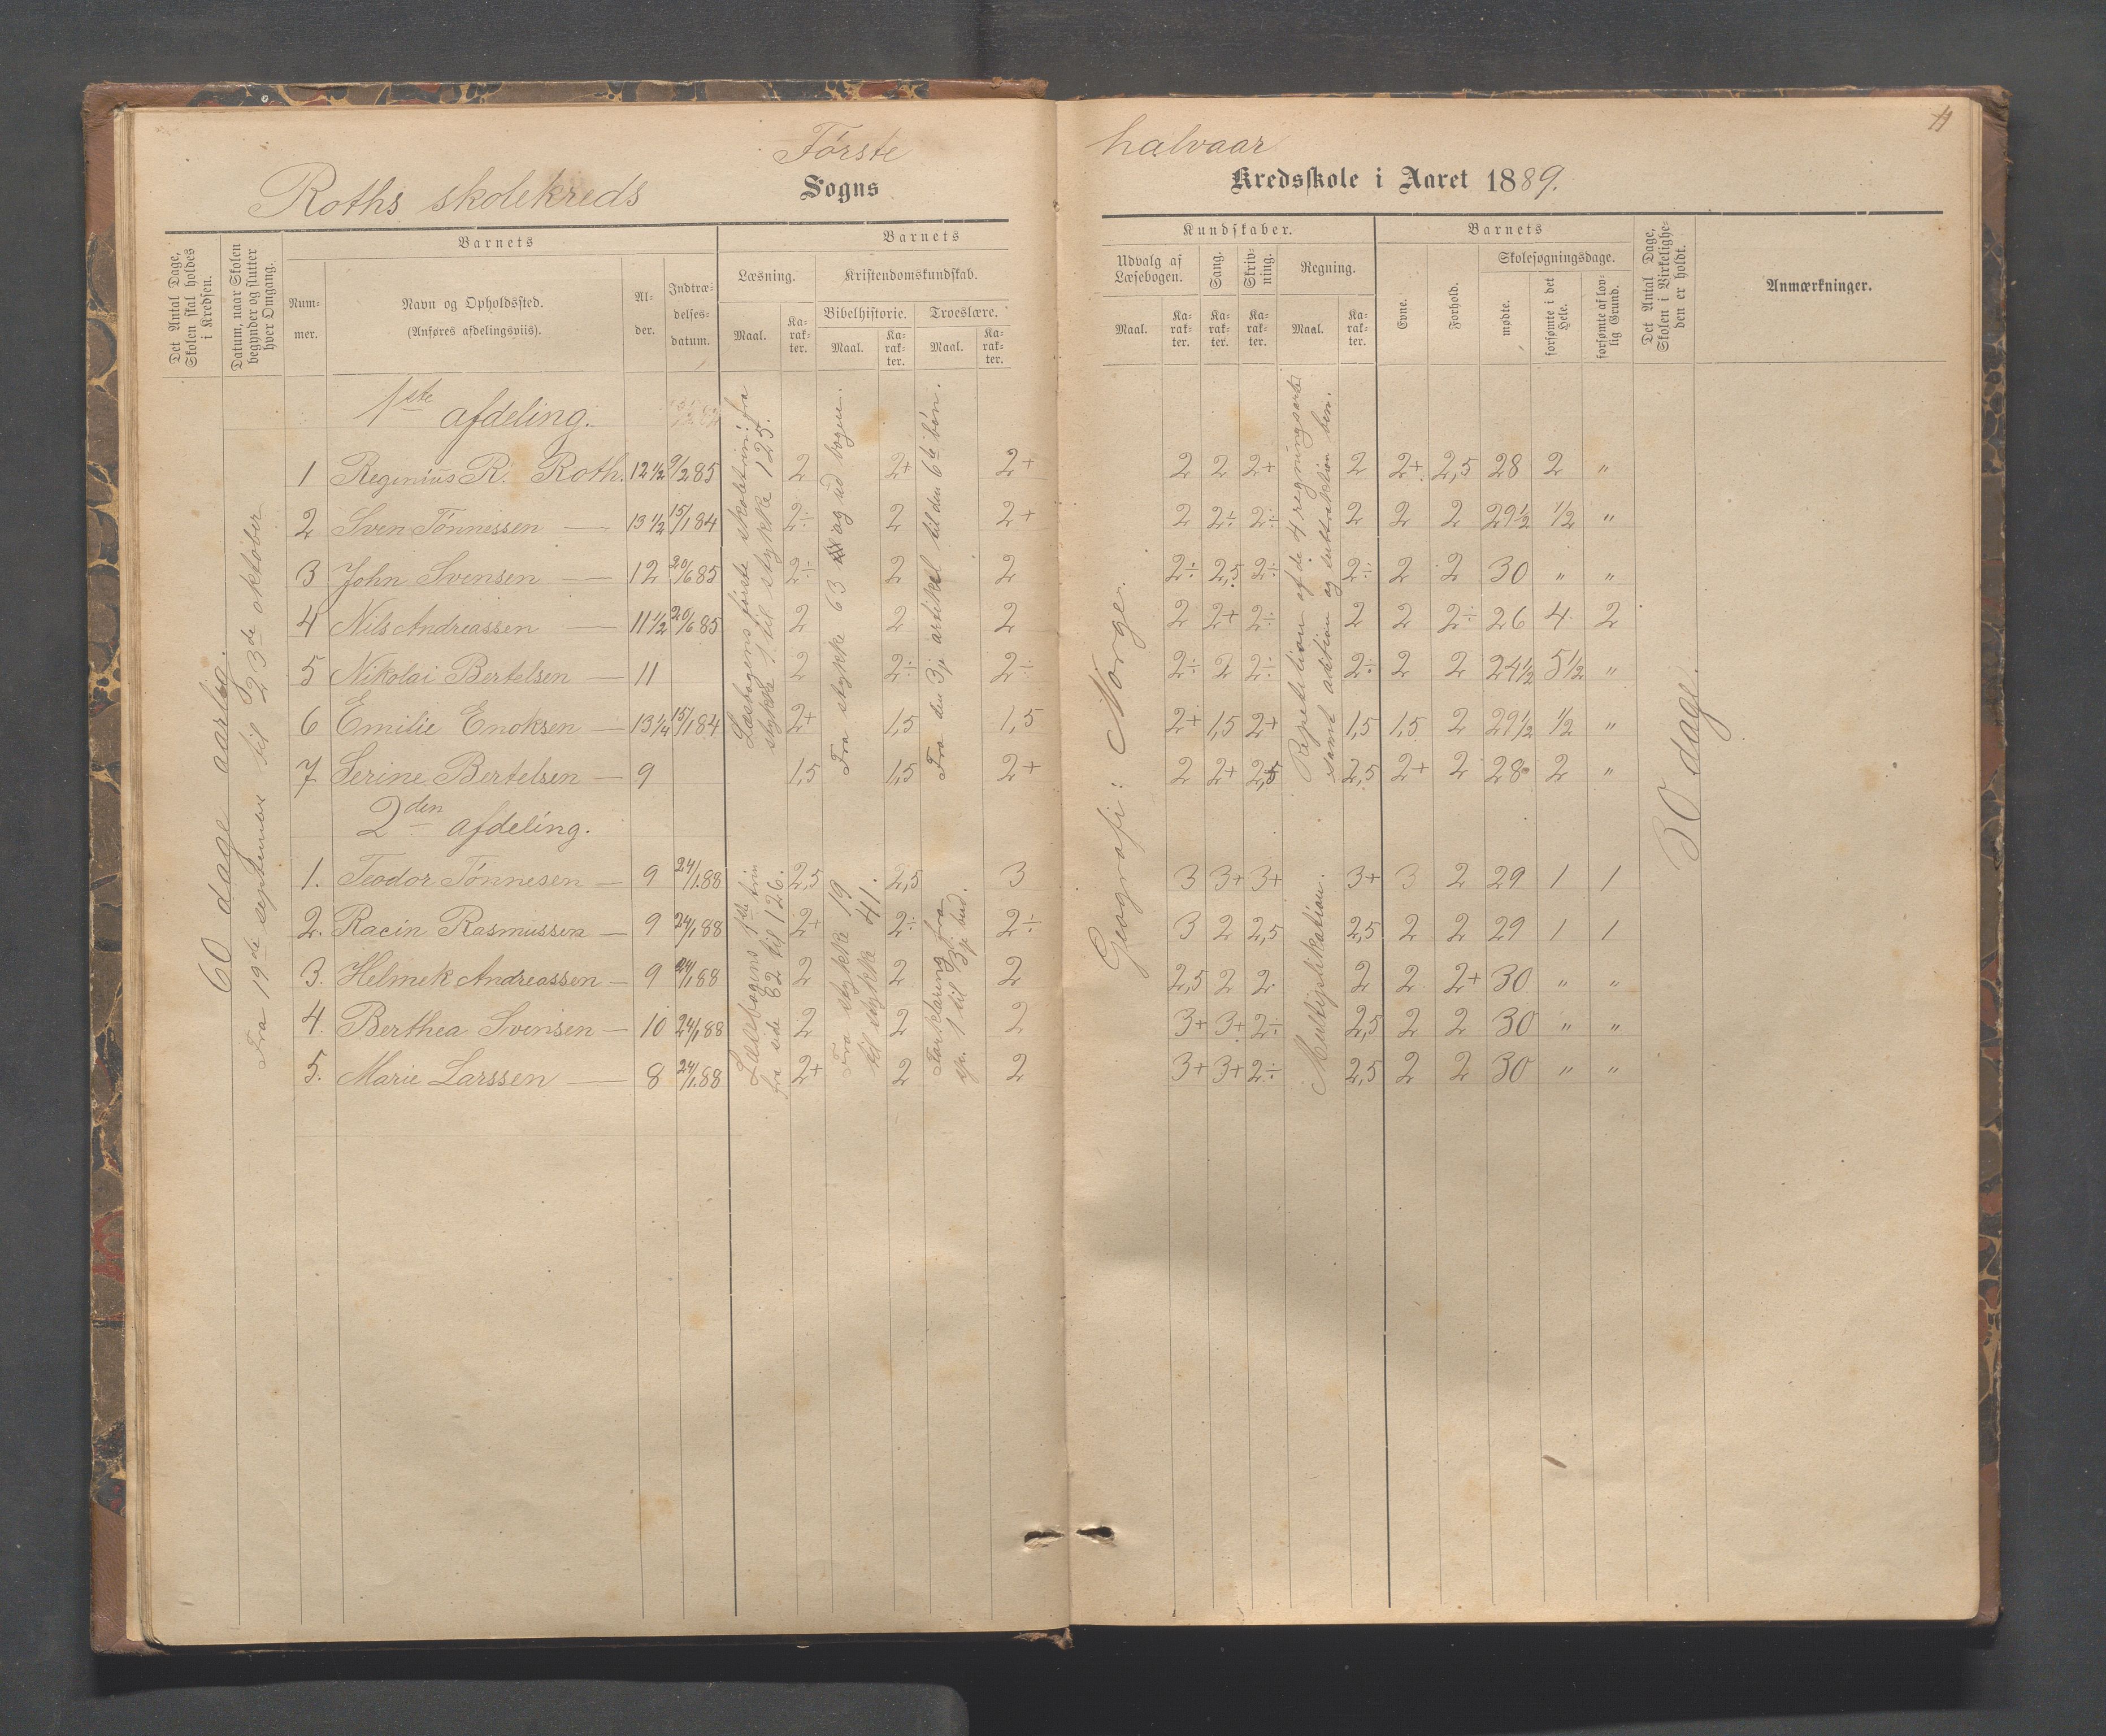 Første halvaar
11
Roths skolekreds Sogns Kredsskole i Aaret 1889.
Det Antal Dage, Skolen skal holdes i Kredsen.
Datum, naar Skolen begynder og slutter hver Omgang.
Barnets
Nummer.
Navn og Opholdssted.
(Anføres afdelingsviis).
Alder.
Indtrædelsesdatum.
Barnets
Læsning.
Maal.
Karakter.
Kristendomskundskab.
Bibelhistorie.
Maal.
Karakter.
Troeslære.
Maal.
Karakter.
Kundskaber.
Udvalg af Læsebogen.
Maal.
Karakter.
Sang.
Karakter.
Skrivning.
Karakter.
Regning.
Maal.
Karakter.
Barnets
Evne.
Forhold.
Skolesøgningsdage.
mødte.
forsømte i det Hele.
forsømte af lovlig Grund.
Det Antal Dage, Skolen i Virkeligheden er holdt.
Anmærkninger.
60 dage aarlig.
Fra 19de september til 23de oktober
1ste afdeling.
1 Reginius R. Roth. 12 1/2 9/2 85 2 2+ 2+ 2 2 2+ 2 2+ 2,5 28 2 "
2 Sven Tønnessen — 13 1/2 15/1 84 2÷ 2 2+ 2 2÷ 2÷ 2 2 2 29 1/2 1/2 "
3 John Svensen — 12 20/6 85 2÷ 2 2 2÷ 2,5 2÷ 2÷ 2 2 30 " "
4 Nils Andreassen — 11 1/2 20/6 85 2 2 2 2 2+ 2÷ 2 2 2÷ 26 4 2
5 Nikolai Bertelsen — 11 2 2÷ 2÷ 2÷ 2 2÷ 2÷ 2 2 24 1/2 5 1/2 "
6 Emilie Enoksen — 13 1/4 15/1 84 2+ 1,5 1,5 2+ 1,5 2+ 1,5 1,5 2 29 1/2 1/2 "
7 Serine Bertelsen — 9 1,5 1,5 2+ 2 2+ 2,5 2,5 2+ 2 28 2 "
Læsbogens første skoletrin: fra stykke 1 til stykke 125.
Fra stykke 63 og ud bogen.
Fra den 3je artikel til den 6te bøn.
Geografi: Norge.
Repetition af de 4 regningsarter samt adition og suttraktion ben.
30 dage.
2den afdeling.
1. Teodor Tønnesen — 9 24/1 88 2,5 2,5 3 3 3+ 3+ 3+ 3 2 29 1 1
2. Racin Rasmussen — 9 24/1 88 2+ 2÷ 2÷ 3 2 2,5 2,5 2 2 29 1 1
3. Helmek Andreassen — 9 24/1 88 2 2 2 2,5 2 2 2 2 2+ 30 " "
4. Berthea Svensen — 10 24/1 88 2 2 2 3+ 3+ 2÷ 2,5 2 2 30 " "
5. Marie Larssen — 8 24/1 88 2+ 2 2 3+ 3+ 2÷ 2,5 2 2 30 " "
Læsebogens 1ste trin fra side 82 til 126.
Fra stykke 19 til stykke 41.
Forklaring fra 1 til 3je bud.
Multiplikation.